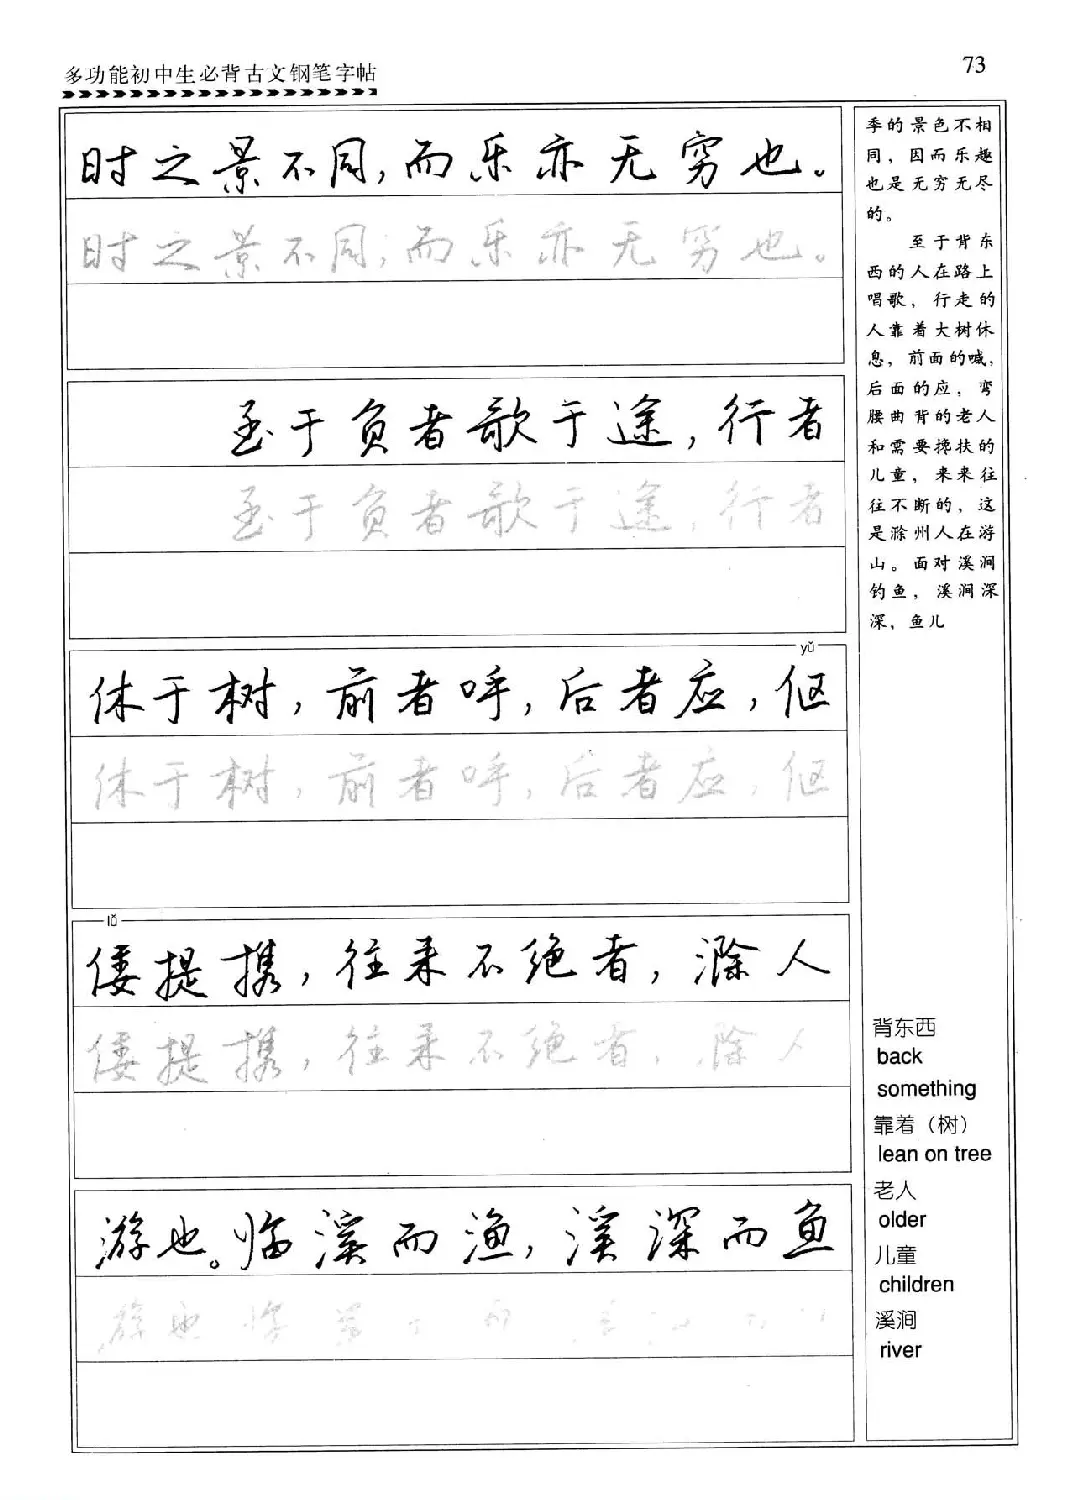 多功能初中生必背古文钢笔字帖
73
时之景不同，而乐亦无穷也。
时之景不同，而乐亦无穷也。
至于负者歌于途，行者
至于负者歌于途，行者
yǔ
休于树，前者呼，后者应，伛
休于树，前者呼，后者应，伛
lǚ
偻提携，往来不绝者，滁人
偻提携，往来不绝者，滁人
游也。临溪而渔，溪深而鱼
游也 临溪
季的景色不相
同，因而乐趣
也是无穷无尽
的。
至于背东
西的人在路上
唱歌，行走的
人靠着大树休
息，前面的喊，
后面的应，弯
腰曲背的老人
和需要搀扶的
儿童，来来往
往不断的，这
是滁州人在游
山。面对溪涧
钓鱼，溪涧深
深，鱼儿
背东西
back
something
靠着（树）
lean on tree
老人
older
儿童
children
溪涧
river